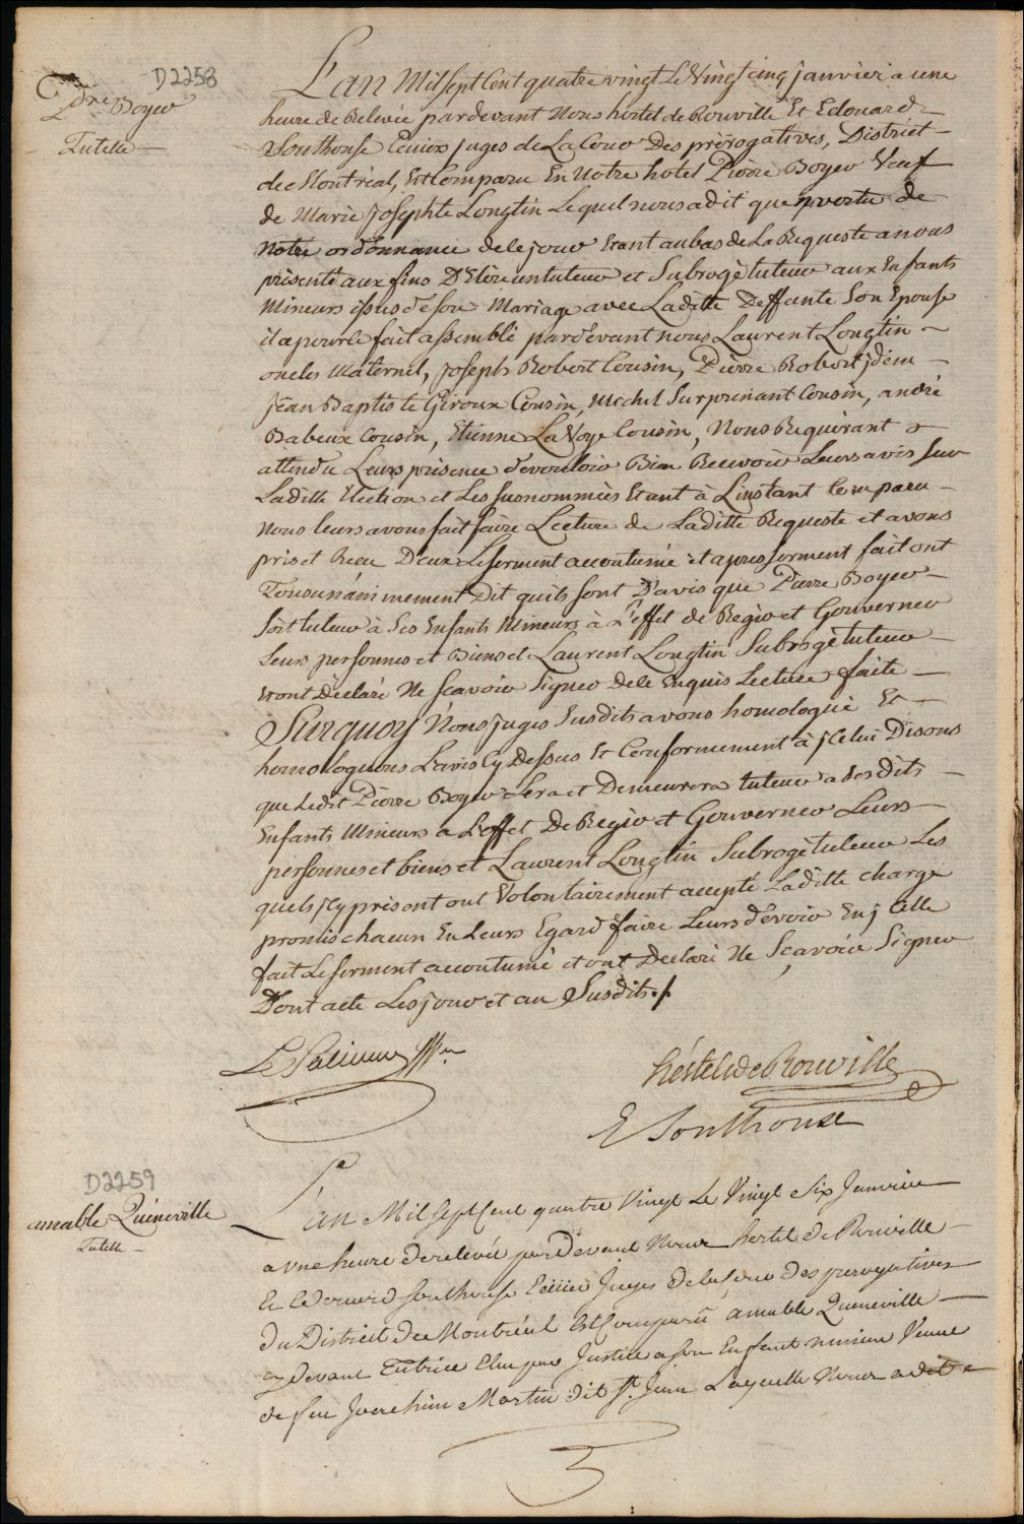 D2258
Pre Boyer
Tutelle
L'an Mil sept Cent quatre vingt Le Vingt cinq janvier a une
heure de Relevée pardevant Nous hertel de Rouville Et Edouard
Southouse Ecuiers juges de La Cour Des prérogatives, District
de Montréal, Est Comparu En Notre hotel Pierre Boyer Veuf
de Marie Josephte Longtin Lequel nous a dit que pvertu de
Notre ordonnance de le jour Etant au bas de La Requeste a nous
présenté aux fins D'Elire un tuteur et Subrogé tuteur aux Enfants
Mineurs issus de son Mariage avec Laditte Deffunte Son Epouse
il a pour le fait assemblé pardevant nous Laurent Longtin
oncles Maternel, Joseph Robert Cousin, Pierre Robert jdem
Jean Baptiste Giroux Cousin, Michel Surprenant Cousin, andré
Babeux Cousin, Etienne La Voye Cousin, Nous Requérant
attendu Leurs présence de vouloir Bien Recevoir Leurs avis sur
Laditte Election et Les susnommées Etant à L'instant Comparu
Nous leurs avons fait faire Lecture de Laditte Requeste et avons
pris et Recu D'eux Le serment accoutumé et apres serment fait ont
Tous unánimement Dit quils sont D'avis que Pierre Boyer
soit tuteur à Ses Enfants Mineurs à L'effet de Régir et Gouverner
Leurs personnes et Biens et Laurent Longtin Subrogé tuteur
et ont Déclaré Ne Scavoir Signer de le Enquis Lecture faite
Surquoy Nous juges Susdits avons homologué Et
homologuons L'avis Cy Dessus Et Conformement à jCelui Disons
que Ledit Pierre Boyer Sera et Demeurera tuteur a Sesdits
Enfants Mineurs a L'effet De Régir et Gouverner Leurs
personnes et biens et Laurent Longtin Subrogé tuteur Les
quels jCy présent ont Volontairement accepté Laditte charge
promis chacun En Leurs Egard faire Leurs dévoir En jCelle
fait Le serment accoutumé et ont Déclaré Ne Scavoir Signer
Dont acte Les jour et an Susdits./.
hértel de Rouville
E Southouse
D2259
amable Quéneville
Tutelle
L'an Mil Sept Cent quatre Vingt Le Vingt Six Janvier
a une heure de relevée par Devant Nous hertel de Rouville
Et Edouard Southouse Ecuiers Juges de la Cour des prerogatives
du District de Montréal Est Comparu amable Queneville
cy devant Tutrice Elue par Justice a son Enfant mineur Veuve
de feu Joachim Martin dit St. Jean Laquelle Nous a dit